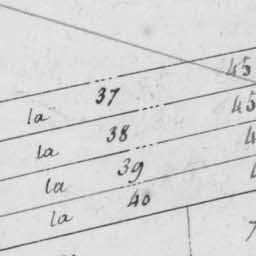 la 37 45
la 38 45
la 39
la 40